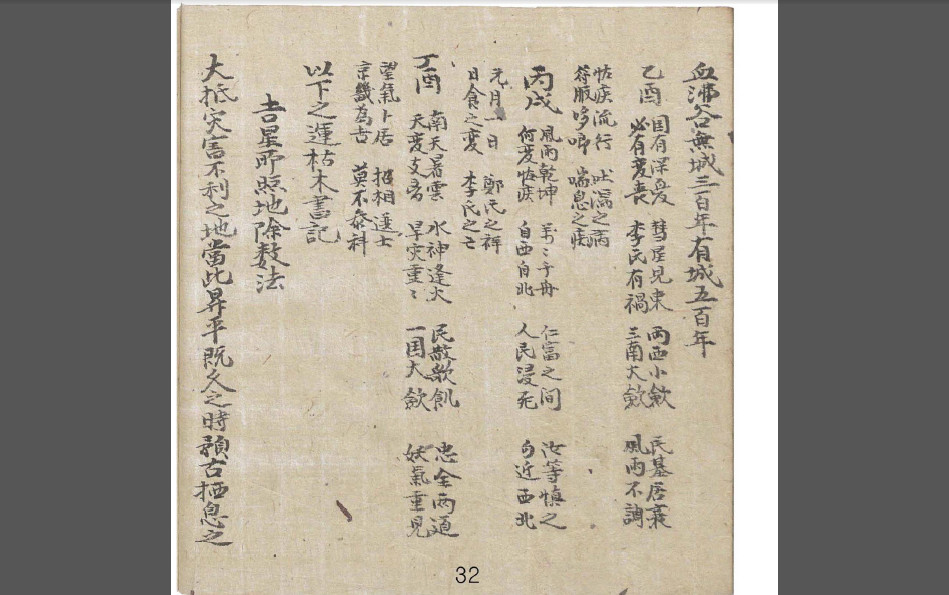 血沸谷無城三百年有城五百年
乙酉
国有深憂 彗星見東 两西小歉 民基居衰
必有変喪 李民有禍 三南大歉 風雨不調
怪疾流行 吐瀉之病
喘息之疾
丙戌
風雨乾坤 仁富之间 汝等慎之
何変怪疾 自西自北 人民浸死 勿近西北
元月一日 鄭氏之祥
日食之変 李氏之亡
丁酉
南天暑雲 水神逢火 民散 飢 忠全两道
天変 旱灾重〻 一国大歉 妖氣重見
望氣卜居 招相 士
京畿為吉 莫不參科
以下之運枯木書記
吉星所照地除数法
大抵灾害不利之地當此昇平既久之時 古栖息之
32